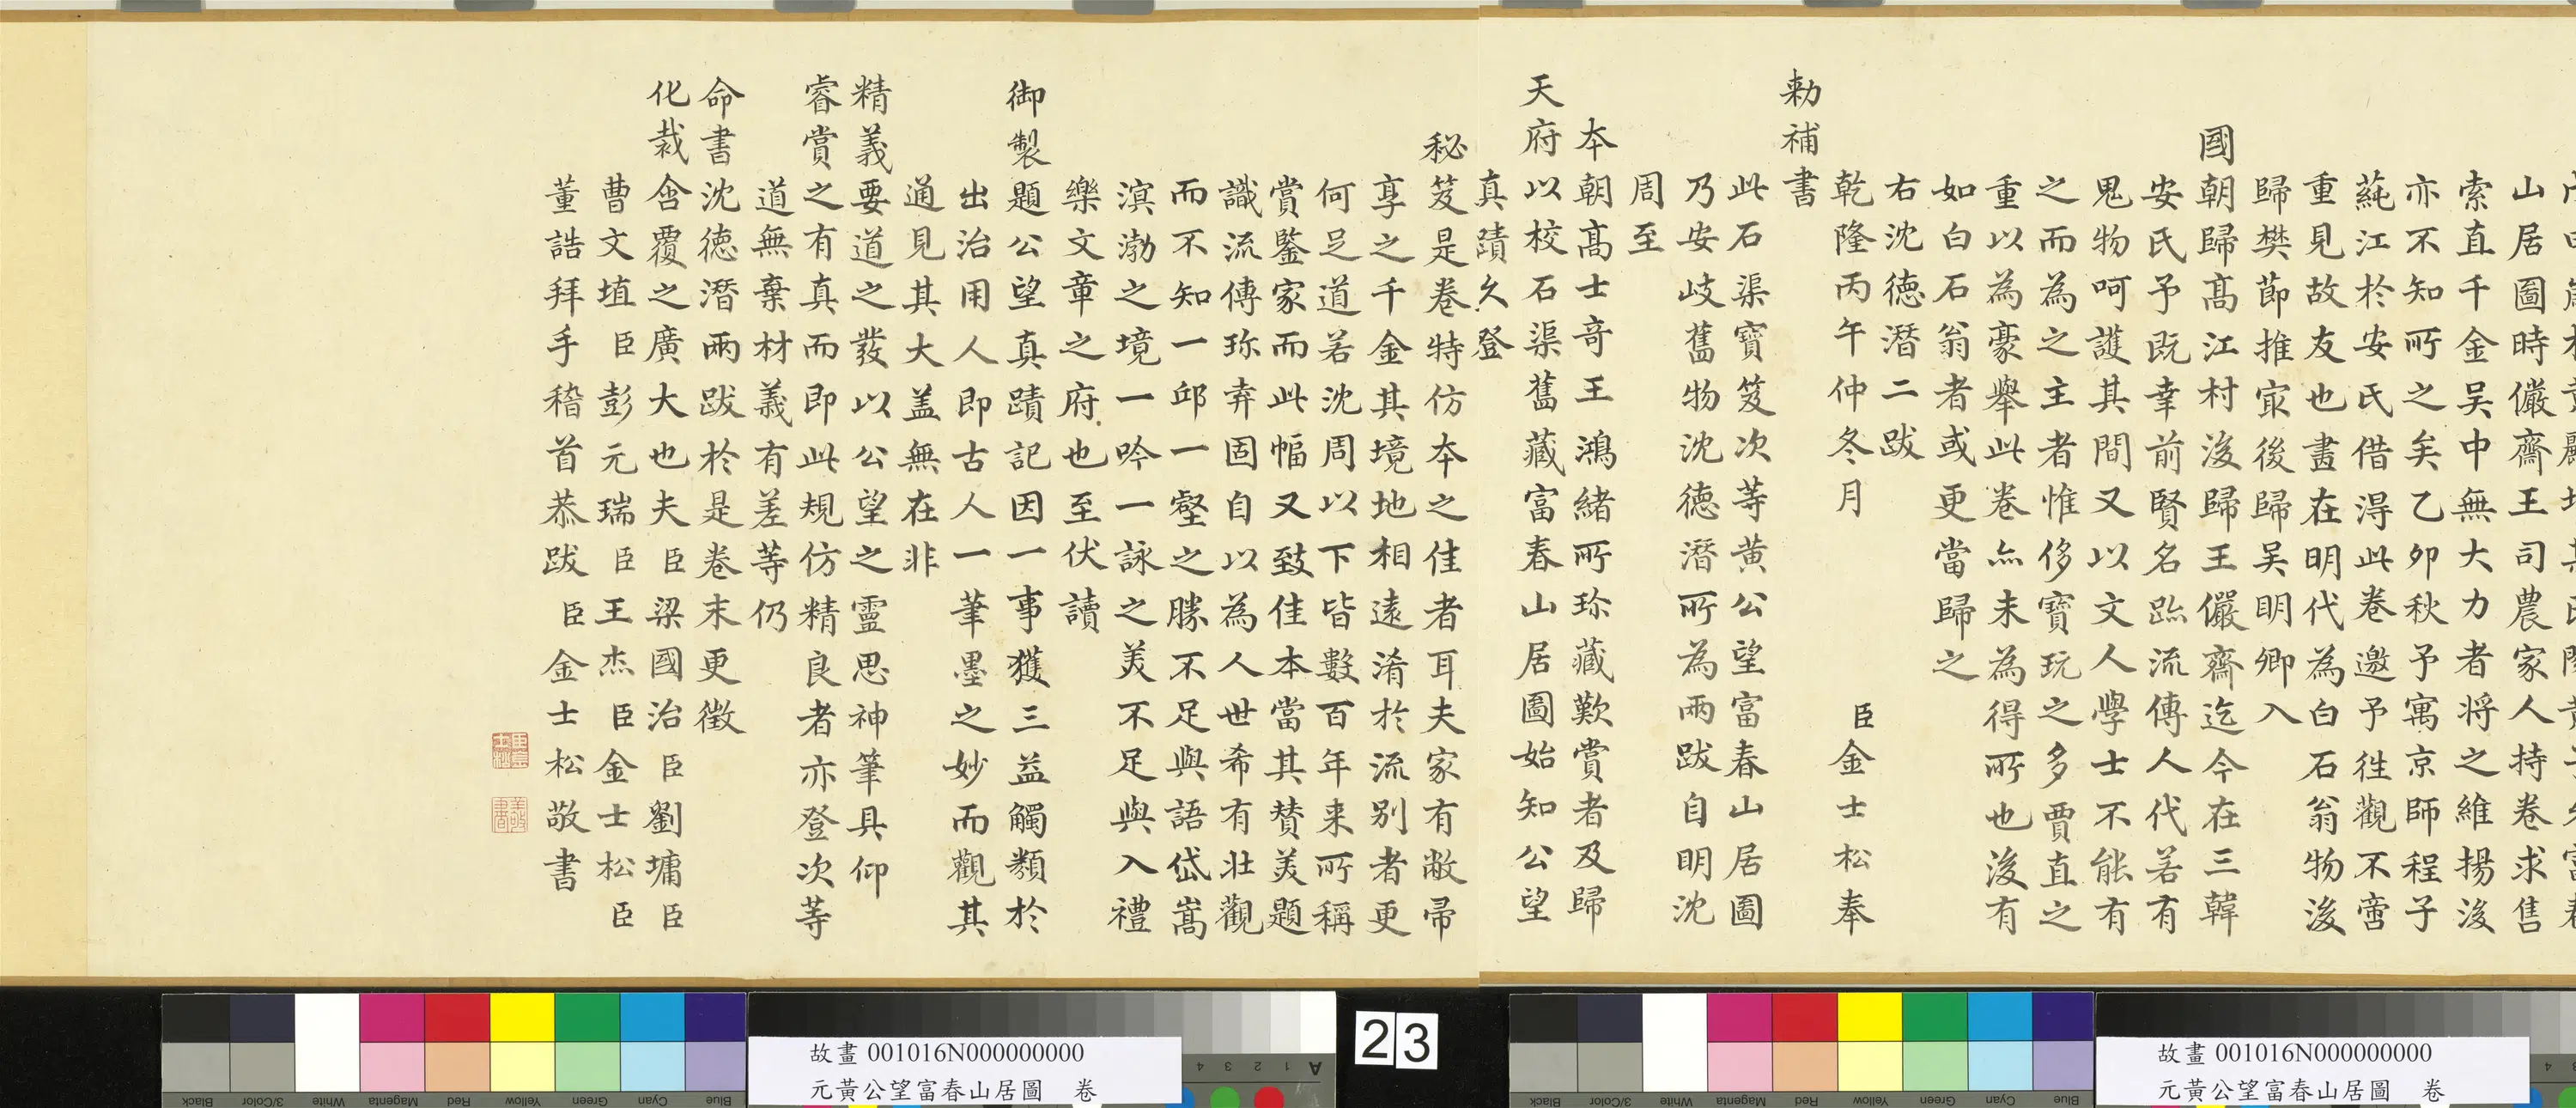 山居圖時儼齋王司農家人持卷求售
索直千金吴中無大力者将之維揚後
亦不知所之矣乙夘秋予寓京師程子
蒓江於安氏借得此卷邀予徃觀不啻
重見故友也畫在明代為白石翁物後
歸樊節推㝡後歸吴明卿入
國朝歸髙江村後歸王儼齋迄今在三韓
安氏予既幸前賢名跡流傳人代若有
鬼物呵護其間又以文人學士不能有
之而為之主者惟侈寶玩之多賈直之
重以為豪舉此卷亦未為得所也後有
如白石翁者或更當歸之
右沈徳潛二跋
乾隆丙午仲冬月 臣金士松奉
勅補書
此石渠寶笈次等黄公望富春山居圖
乃安岐舊物沈徳潛所為兩跋自明沈
周至
本朝髙士奇王鴻緒所珎藏歎賞者及歸
天府以校石渠舊藏富春山居圖始知公望
真蹟久登
秘笈是卷特仿本之佳者耳夫家有敝帚
享之千金其境地相遠淆於流别者更
何足道若沈周以下皆數百年来所稱
賞鑒家而此幅又致佳本當其賛美題
識流傳珎弆固自以為人世希有壮觀
而不知一邱一壑之勝不足與語岱嵩
溟渤之境一吟一詠之美不足與入禮
樂文章之府也至伏讀
御製題公望真蹟記因一事獲三益觸類於
出治用人即古人一筆墨之妙而觀其
通見其大盖無在非
精義要道之發以公望之靈思神筆具仰
睿賞之有真而即此規仿精良者亦登次等
道無棄材義有差等仍
命書沈徳潛兩跋於是卷末更徵
化裁含覆之廣大也夫臣梁國治臣劉墉臣
曹文埴臣彭元瑞臣王杰臣金士松臣
董誥拜手稽首恭跋臣金士松敬書
故畫 001016N000000000
元黃公望富春山居圖 卷
23
故畫 001016N000000000
元黃公望富春山居圖 卷
Black
3/Color
White
Magenta
Red
Yellow
Green
Cyan
Blue
A 1 2 3 4
Black
3/Color
White
Magenta
Red
Yellow
Green
Cyan
Blue